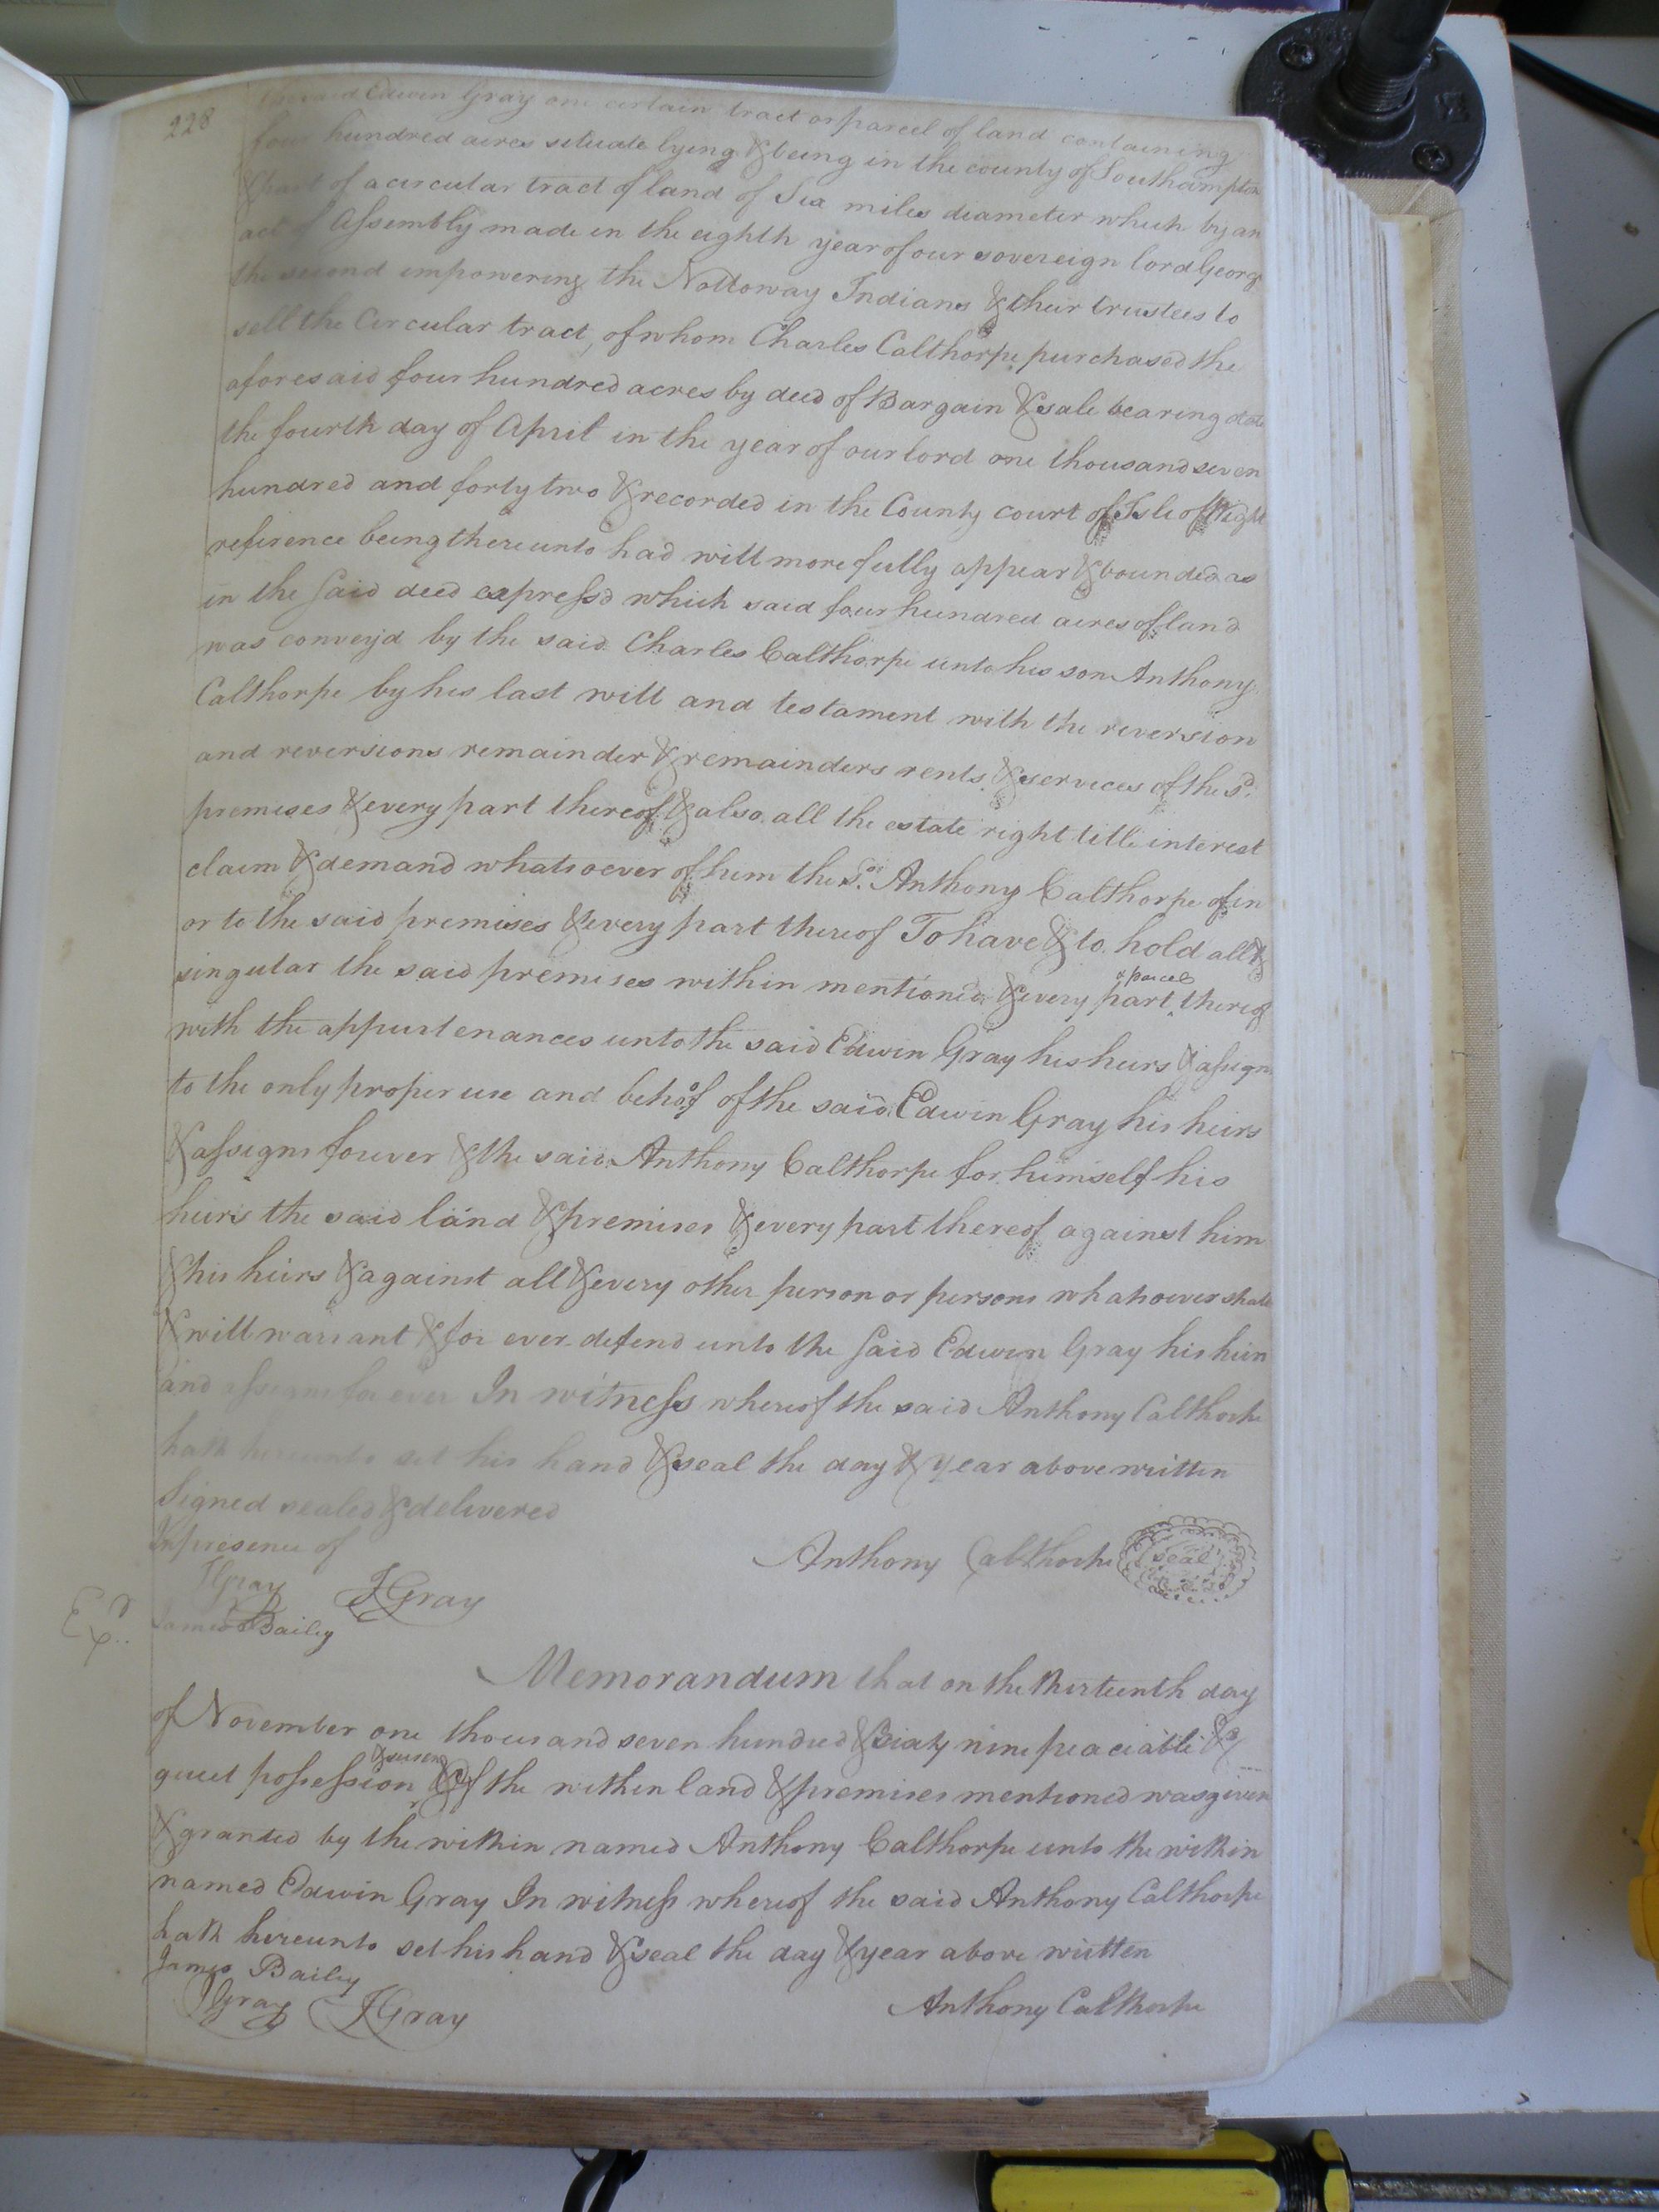 228
the said Edwin Gray one certain tract or parcel of land containing
four hundred acres situate lying & being in the county of Southampton
& part of a circular tract of land of Six miles diameter which by an
act of Assembly made in the eighth year of our sovereign lord George
the second empowering the Nottoway Indians & their trustees to
sell the Circular tract, of whom Charles Calthorpe purchased the
aforesaid four hundred acres by deed of Bargain & sale bearing date
the fourth day of April in the year of our lord one thousand seven
hundred and forty two & recorded in the County court of Isle of Wight
referience being thereunto had will more fully appear & bounded as
in the said deed express'd which said four hundred acres of land
was convey'd by the said Charles Calthorpe unto his son Anthony
Calthorpe by his last will and testament with the reversion
and reversions remainder & remainders rents & services of the sd.
premises & every part thereof & also all the estate right title interest
claim & demand whatsoever of him the sd. Anthony Calthorpe of in
or to the said premises & every part thereof To have & to hold all &
singular the said premises within mentioned & every part & parcel thereof
with the appurtenances unto the said Edwin Gray his heirs & assigns
to the only proper use and behoof of the said Edwin Gray his heirs
& assigns forever & the said Anthony Calthorpe for himself his
heirs the said land & premises & every part thereof against him
& his heirs & against all & every other person or persons whatsoever shall
& will warrant & for ever defend unto the said Edwin Gray his heirs
and assigns for ever In witness whereof the said Anthony Calthorpe
hath hereunto set his hand & seal the day & year above written
Signed sealed & delivered
In presence of
Anthony Calthorpe seal
JGray JGray
James Bailey
Exd.
Memorandum that on the thirteenth day
of November one thousand seven hundred & Sixty nine peaceable &
quiet possession & seisen of the within land & premises mentioned was given
& granted by the within named Anthony Calthorpe unto the within
named Edwin Gray In witness whereof the said Anthony Calthorpe
hath hereunto set his hand & seal the day & year above written
James Bailey
JGray JGray
Anthony Calthorpe